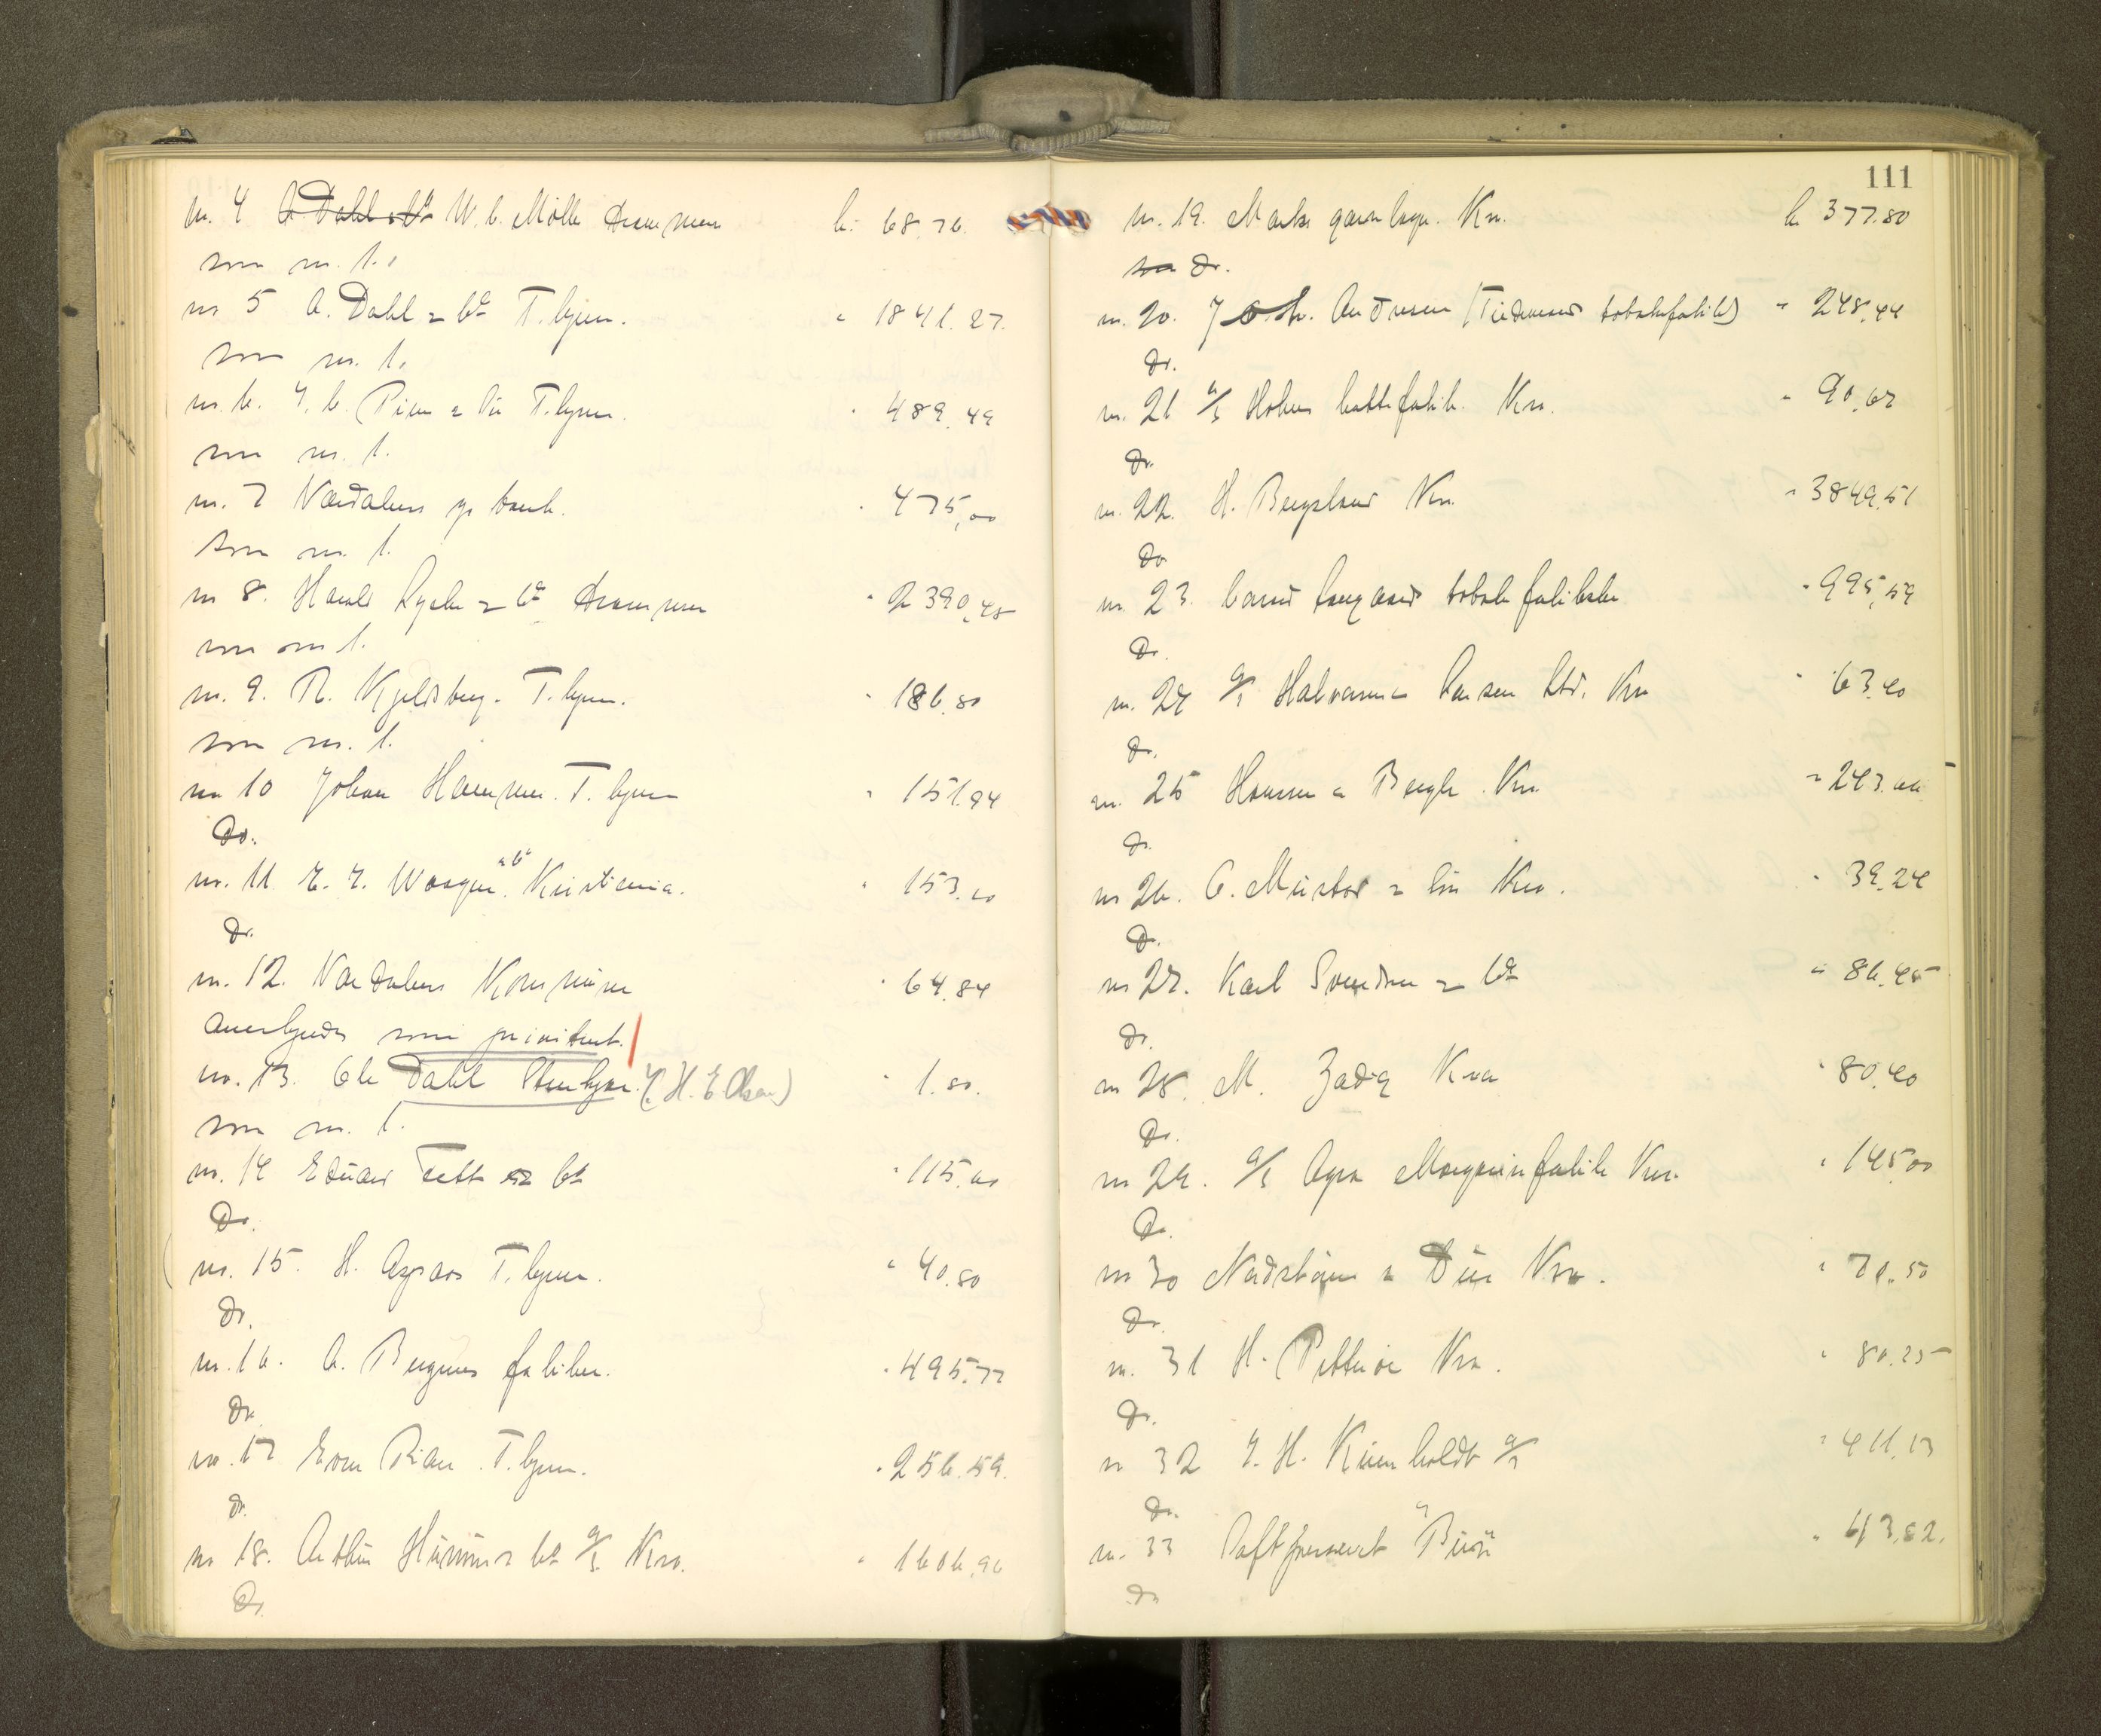 nr. 4 A Dahl & Co W. C. Møller Drammen k: 68.76.
som nr. 1.
nr 5 A. Dahl & Co T.hjem. " 1841.27.
som nr. 1.
nr. 6. J. C. Piene & Søn T.hjem. " 489.49
som nr. 1.
nr. 7 Værdalens sp. bank. " 475,00
som nr. 1.
nr 8. Harald Lyche & Co Drammen " 2390,45
som nr 1.
nr. 9. R. Kjeldsberg. T.hjem. " 186.80
som nr. 1.
nr 10 Johan Hammer. T.hjem " 151.94
Do.
nr. 11 E. F. Waagen & Co Kristiania. " 153.10
Do.
nr. 12. Værdalens Kommune " 64.84
Anerkjendes som prioritert.
nr. 13. Ole Dahl Stenkjær. (H. E Olsen) " 1.80.
som nr. 1.
nr. 14 Eduard Tett & Co " 115.00
Do.
nr. 15. H. Aspaas T.hjem. " 40.80
Do.
nr. 16. A. Bergenes fabriker. " 495.77
Do.
nr. 17 Even Rian T.hjem. " 256.59.
Do.
nr 18. Arthur Hummel Co A/S. Kra. " 1606.96
Do.
111
nr. 19. Marks garnlager. Kra. k 377.80
som Do.
nr. 20. Joh. Andresen (Tiedemands tobaksfabrik) " 248.44
Do.
nr. 21 A/S Holmens hattefabrik. Kra. " 90,67
Do.
nr. 22. H. Bergsland Kra. " 3849.51
Do
nr. 23. Conrad Langaard tobaksfabrikker " 995,59
Do.
nr. 24 A/S Halvorsen & Larsen Ltd. Kra " 63.40
Do.
nr. 25 Hansen & Bergh. Kra. " 243.00
Do.
nr 26. O. Mustad & Søn Kra. " 39.24
Do.
nr 27. Karl Svendsen & Co " 86.45
Do.
nr 28. M. Zadig Kra " 80.40
Do.
nr 29. A/S Agra Margarinfabrik Kra. " 145.00
Do.
nr 30 Nordstrøm & Due Kra. " 70.50
Do.
nr. 31 H. Petterøe Kra. " 80.25
Do.
nr 32 J. H. Kiernholdt A/S " 411.13
Do.
nr. 33 Saftpresseriet "Bur" " 413.82.
Do